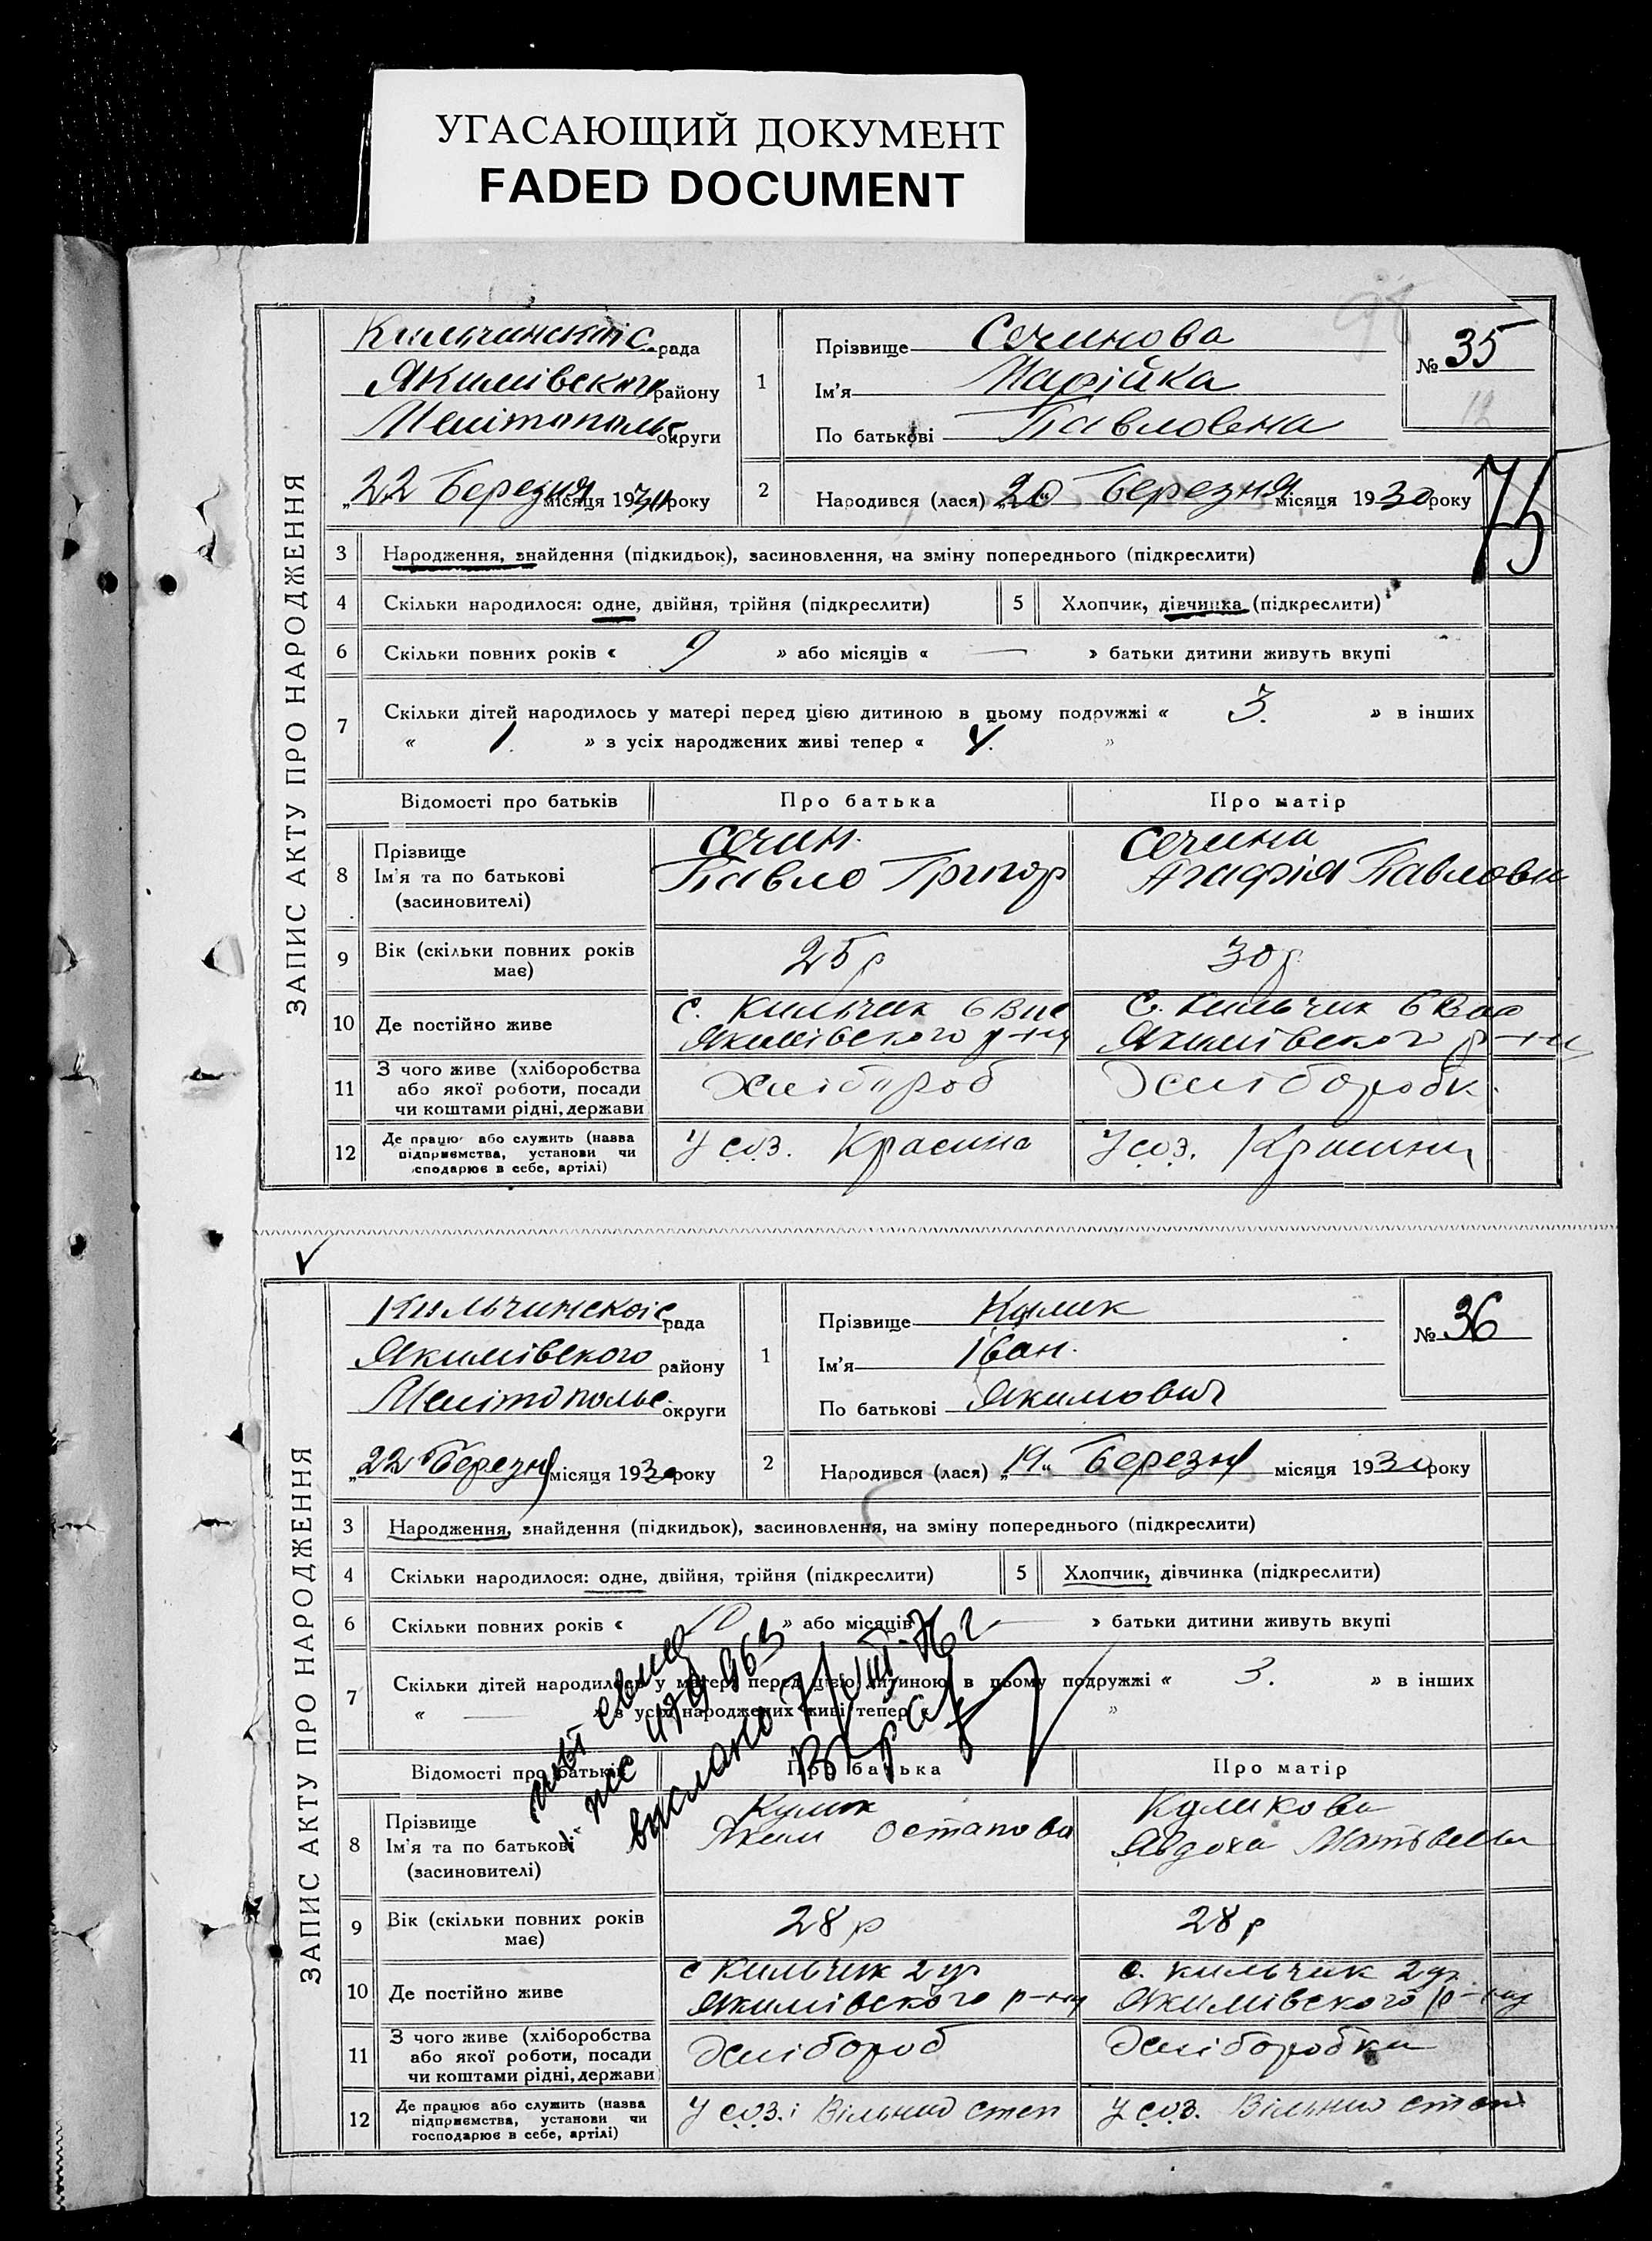 УГАСАЮЩИЙ ДОКУМЕНТ
FADED DOCUMENT
ЗАПИС АКТУ ПРО НАРОДЖЕННЯ
Кильчинскої с. рада
Якимівского району
Мелітопольс округи
„22 Березня місяця 1930 року
1
Прізвище Сечинова
Ім'я Марійка
По батькові Павловна
№ 35
2
Народився (лася) „20“ Березня місяця 1930 року
75
3 Народження, знайдення (підкидьок), засиновлення, на зміну попереднього (підкреслити)
4 Скільки народилося: одне, двійня, трійня (підкреслити) 5 Хлопчик, дівчинка (підкреслити)
6 Скільки повних років « 9 » або місяців « — » батьки дитини живуть вкупі
7 Скільки дітей народилось у матері перед цією дитиною в цьому подружжі « 3. » в інших
« 1. » з усіх народжених живі тепер « 4. »
Відомості про батьків Про батька Про матір
8 Прізвище
Ім'я та по батькові
(засиновителі)
Сечин.
Павло Григор
Сечина
Агафія Павловн
9 Вік (скільки повних років
має)
25 р
30 р
10 Де постійно живе
с. Кильчик
Якимівского р-ну
с. Кильчик
Якимівского р-ну
11 З чого живе (хліборобства
або якої роботи, посади
чи коштами рідні, держави
Хлібороб
Хлiборобк.
12 Де працює або служить (назва
підприємства, установи чи
господарює в себе, артілі)
У соз. Красина
У соз. Красина
ЗАПИС АКТУ ПРО НАРОДЖЕННЯ
Кильчинскої с рада
Якимівского району
Мелітопольс. округи
„22 Березня місяця 1930 року
1
Прізвище Кулик
Ім'я Іван.
По батькові Якимович
№ 36
2
Народився (лася) „19“ Березня місяця 1930 року
3 Народження, знайдення (підкидьок), засиновлення, на зміну попереднього (підкреслити)
4 Скільки народилося: одне, двійня, трійня (підкреслити) 5 Хлопчик, дівчинка (підкреслити)
6 Скільки повних років « 10 » або місяців — » батьки дитини живуть вкупі
7 Скільки дітей народилось у матері перед цією дитиною в цьому подружжі « 3. » в інших
« — » з усіх народжених живі тепер »
Відомості про батьків Про батька Про матір
8 Прізвище
Ім'я та по батькові
(засиновителі)
Кулик
Яким Остапови
Куликова
Явдоха Матвеевн
9 Вік (скільки повних років
має)
28 р
28 р
10 Де постійно живе
с Кильчик 2
Якимівского р-ну
с. Кильчик 2
Якимівского р-ну
11 З чого живе (хліборобства
або якої роботи, посади
чи коштами рідні, держави
Хлібороб
Хліборобка
12 Де працює або служить (назва
підприємства, установи чи
господарює в себе, артілі)
У соз. Вільний степ
У соз. Вільний степ